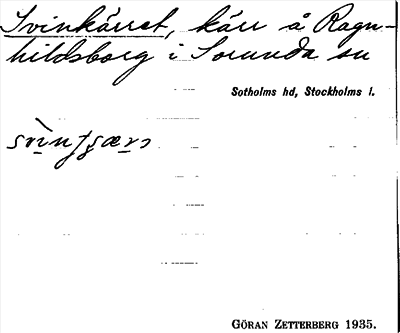 Svinkärret, kärr å Ragn-
hildsborg i Sorunda sn
Sotholms hd, Stockholms l.
GÖRAN ZETTERBERG 1935.